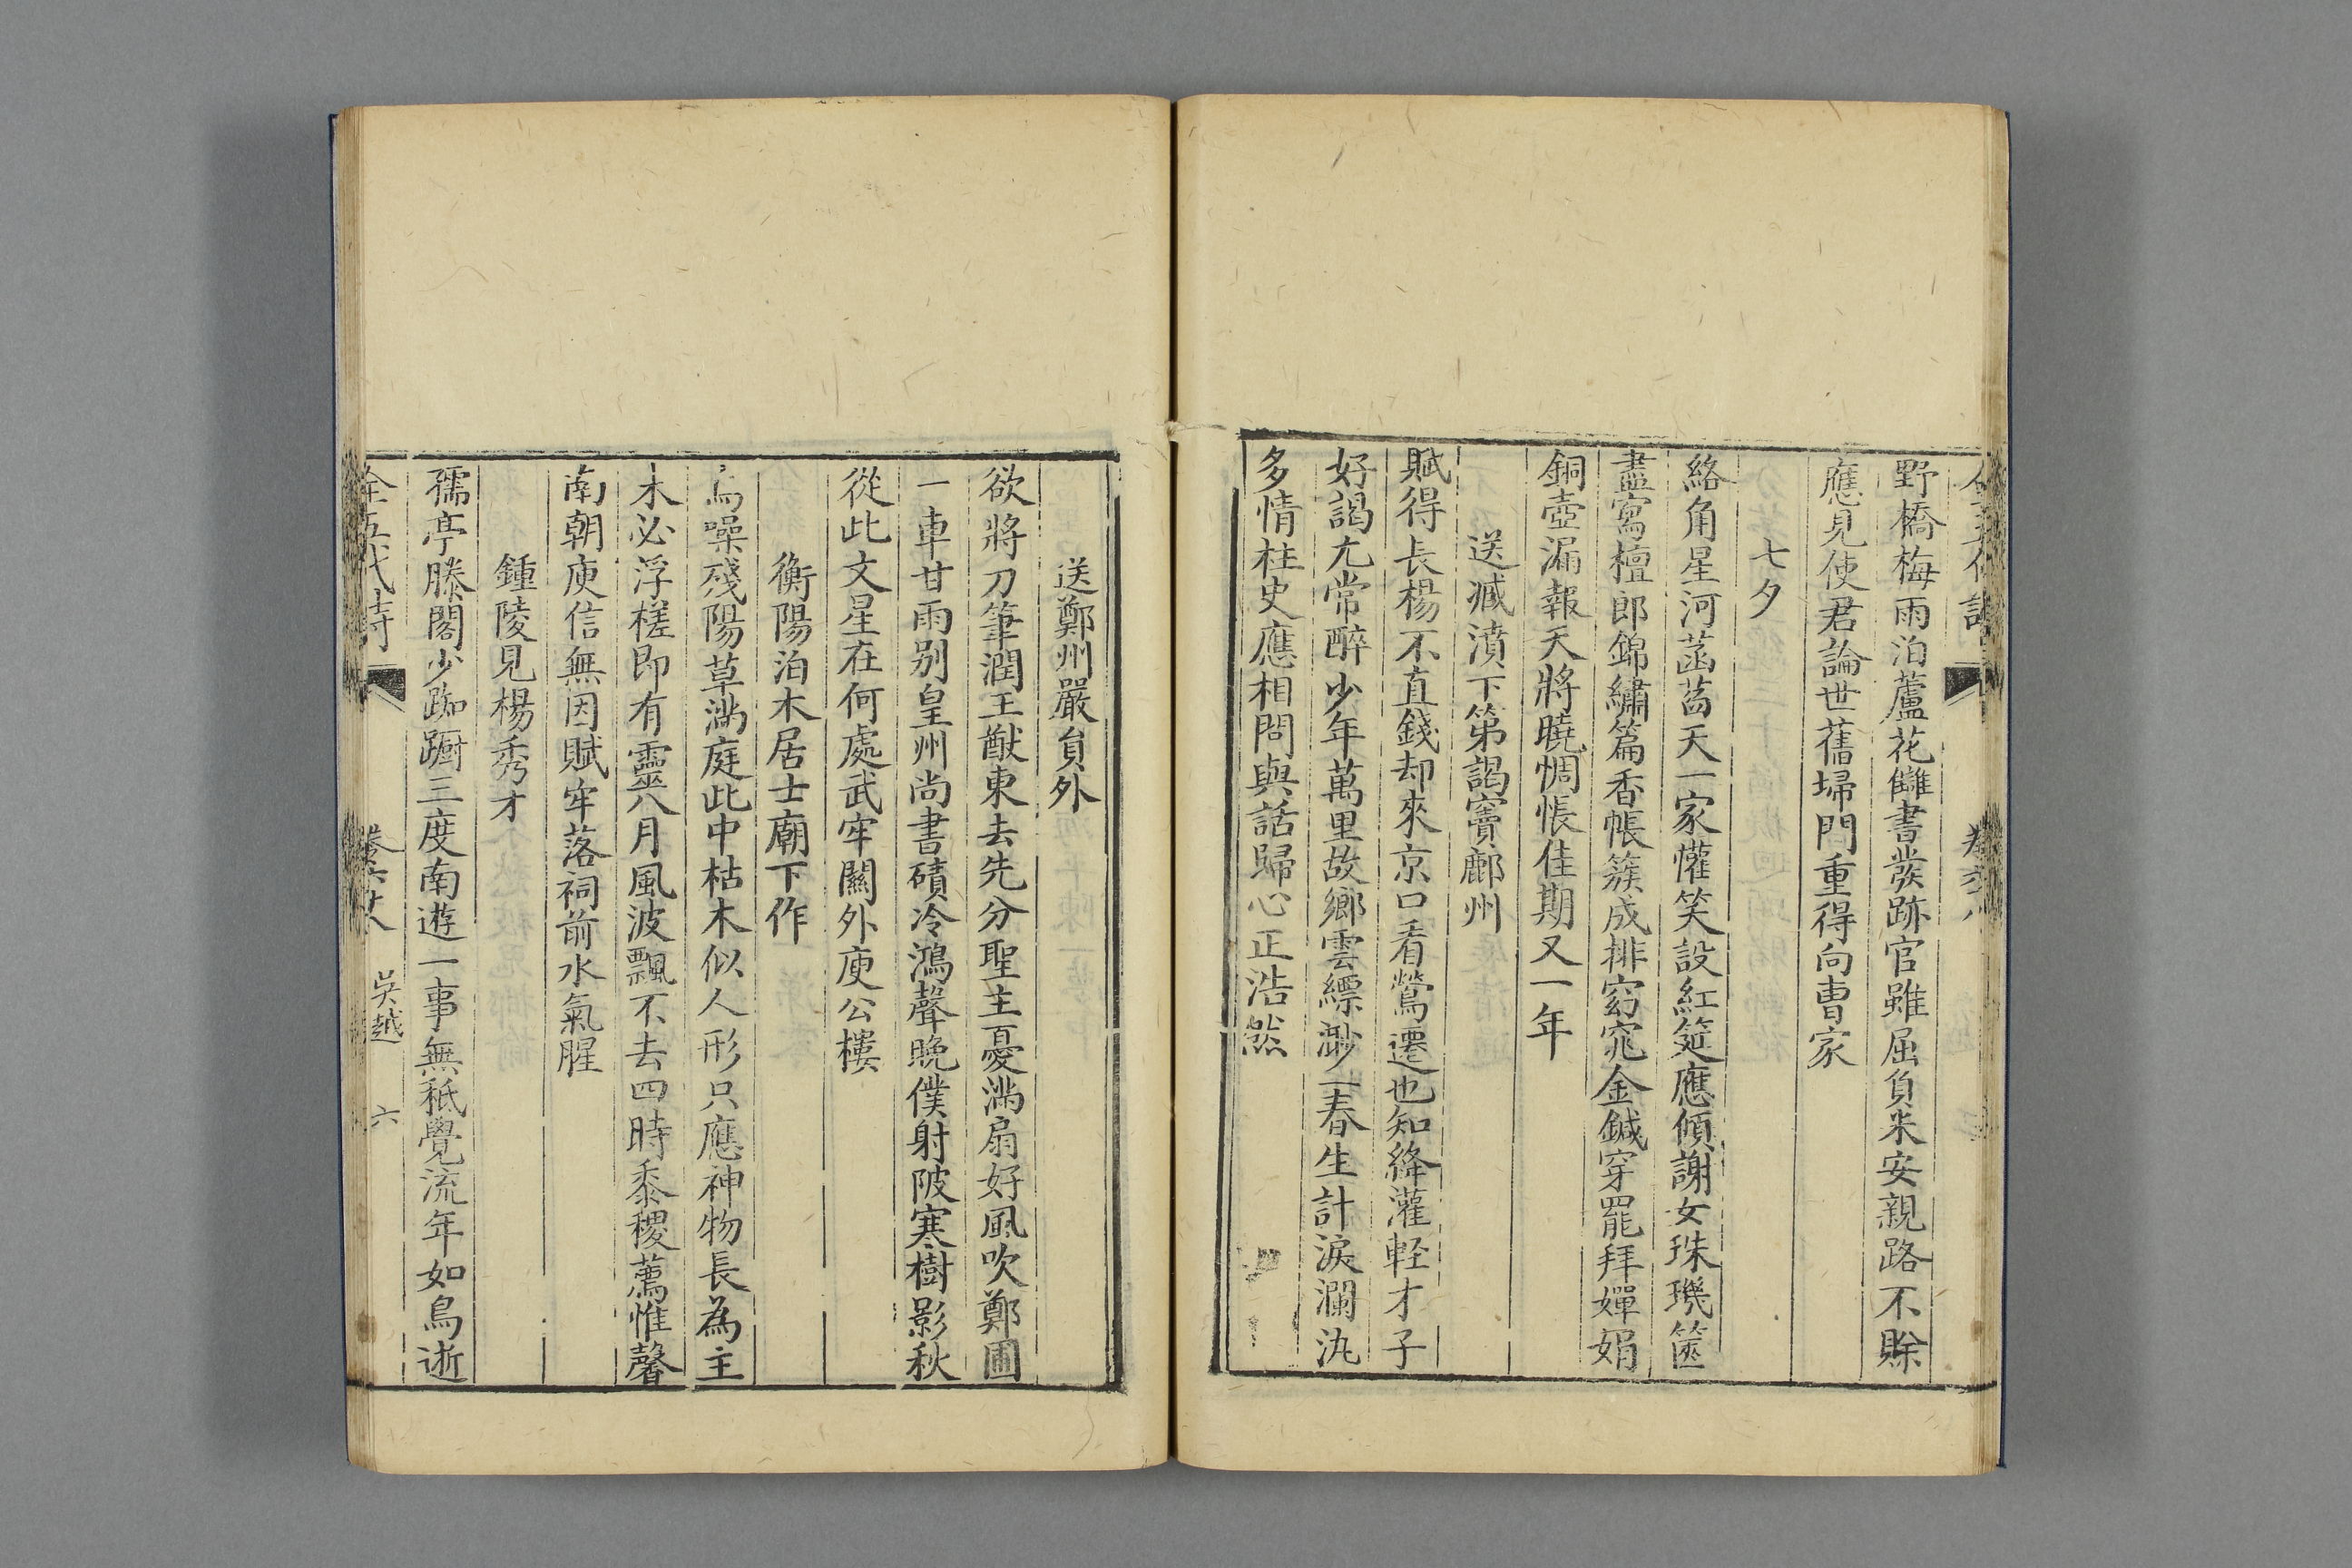 野橋梅雨泊蘆花雠書發跡官雖屈負米安親路不賒
應見使君論世舊埽門重得向曹家
七夕
絡角星河菡萏天一家懽笑設紅筵應傾謝女珠璣篋
盡寫檀郎錦繡篇香帳簇成排窈窕金鍼穿罷拜嬋娟
銅壺漏報天將曉惆悵佳期又一年
送臧濆下第謁竇鄜州
賦得長楊不直錢却來京口看鶯遷也知絳灌輕才子
好謁尤常醉少年萬里故鄉雲縹渺一春生計淚瀾汍
多情柱史應相問與話歸心正浩然
送鄭州嚴員外
欲將刀筆潤王猷東去先分聖主憂滿扇好風吹鄭圃
一車甘雨别皇州尚書磧冷鴻聲晚僕射陂寒樹影秋
從此文星在何處武牢關外庾公樓
衡陽泊木居士廟下作
烏噪殘陽草滿庭此中枯木似人形只應神物長為主
木必浮槎即有靈八月風波飄不去四時黍稷薦惟馨
南朝庾信無因賦牢落祠前水氣腥
鍾陵見楊秀才
孺亭滕閣少踟躕三度南遊一事無秖覺流年如鳥逝
全五代詩 吳越 六